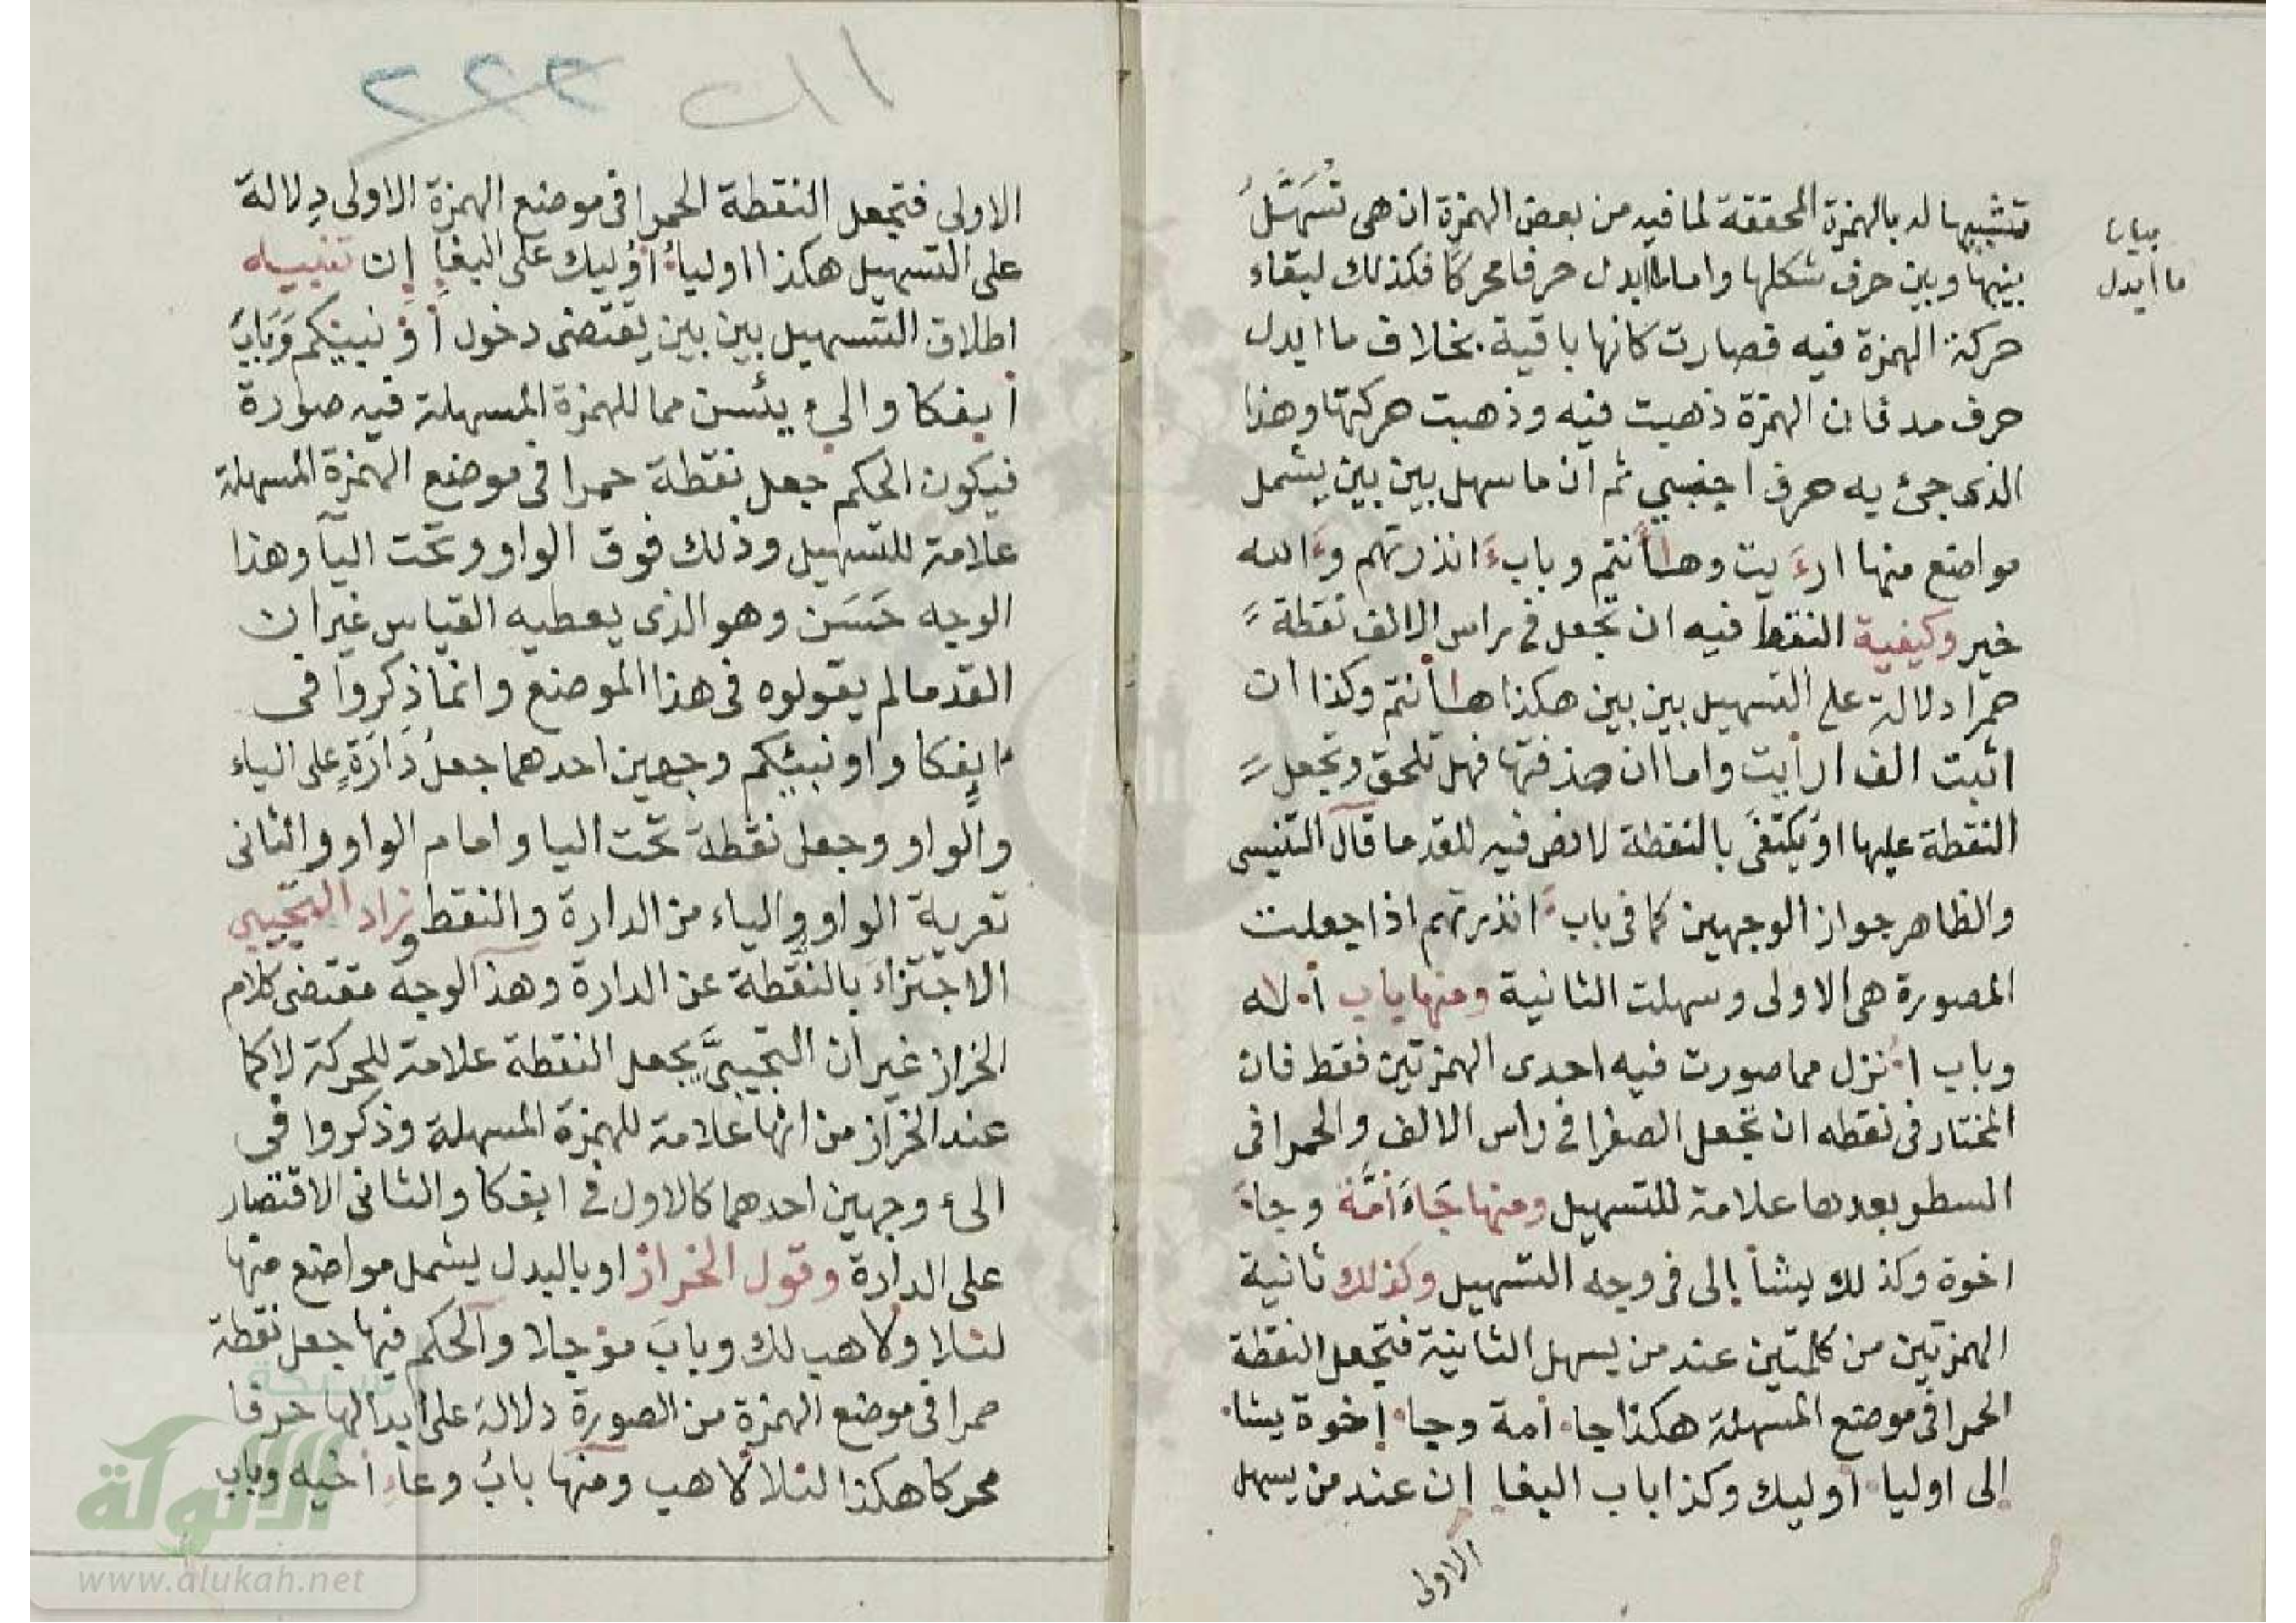 تشبيها له بالهمزة المحققة لما فيه من بعض الهمزة ان هى تُسَهَّلُ
بينها وبين حرف شكلها واما ما ابدل حرفا محركا فكذلك لبقاء
حركة الهمزة فيه فصارت كانها باقية بخلاف ما ابدل
حرف مد فان الهمزة ذهبت فيه وذهبت حركتها وهذا
الذى جئ به حرف اجنبي ثم ان ما سهل بين بين يشمل
مواضع منها ارءَيت وهاأنتم وباب ءَانذرتهم وءَالله
خير وكيفية النقط فيه ان تجعل فى راس الالف نقطة
حمرا دلالة على التسهيل بين بين هكذا هاأنتم وكذا ان
اثبت الف ارأيت واما ان حذفتها فهل تلحق وتجعل
النقطة عليها او يكتفى بالنقطة لا نص فيه للقدما قال التنيسى
والظاهر جواز الوجهين كما فى باب ءَانذرتهم اذا جعلت
المصورة هى الاولى وسهلت الثانية ومنها باب أ۰له
وباب ا۰نزل مما صورت فيه احدى الهمزتين فقط فان
المختار فى نقطه ان تجعل الصفرا فى راس الالف والحمرا فى
السطر بعدها علامة للتسهيل ومنها جَاءَ امَّة وجاءَ
اخوة وكذلك يشأ إلى فى وجه التسهيل وكذلك ثانية
الهمزتين من كلمتين عند من يسهل الثانية فتجعل النقطة
الحمرا فى موضع المسهلة هكذا جاء أمة وجاء إخوة يشاء
إلى اوليا أوليك وكذا باب البغا إن عند من يسهل
الاولى
بيان
ما ابدل
۱۱ ب ۲۲۲
الاولى فتجعل النقطة الحمرا فى موضع الهمزة الاولى دلالة
على التسهيل هكذا اولياءُ أوُليك على البغاِ إِن تنبيه
اطلاق التسهيل بين بين يقتضى دخول أؤنبئكم وَبَابُ
أيفكا والىء يئسن مما للهمزة المسهلة فيه صورة
فيكون الحكم جعل نقطة حمرا فى موضع الهمزة المسهلة
علامة للتسهيل وذلك فوق الواو وتحت اليا وهذا
الوجه حَسَن وهو الذى يعطيه القياس غير ان
القدما لم يقولوه فى هذا الموضع وانما ذكروا فى
ايفكا واونبئكم وجهين احدهما جعلُ دَارَةٍ على الياء
والواو وجعل نقطة تحت اليا وامام الواو والثانى
تعرية الواو والياء من الدارة والنقط وزاد التجيبى
الاجتزاءَ بالنقطة عن الدارة وهذا الوجه مقتضى كلام
الخراز غير ان التجيبىَّ يجعل النقطة علامة للحركة لا كما
عند الخراز من انها علامة للهمزة المسهلة وذكروا فى
الىء وجهين احدهما كالاول فى ايفكا والثانى الاقتصار
على الدارة وقول الخراز او بالبدل يشمل مواضع منها
لئلا ولاهب لك وبابَ مؤجلا والحكم فيها جعل نقطة
حمرا فى موضع الهمزة من الصورة دلالة على ابدالها حرفا
محركا هكذا لئلا لاهب ومنها بابُ وعاءِ أخيه وباب
الألوكة
www.alukah.net